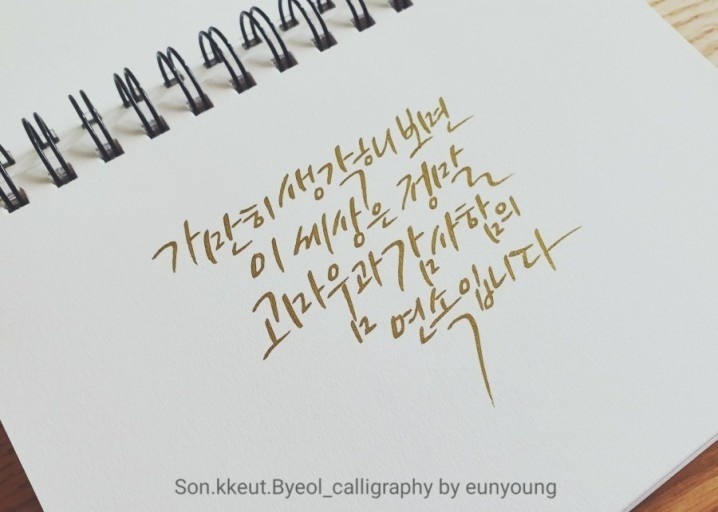 가만히 생각해 보면
이 세상은 정말
고마움과 감사함의
연속입니다
Son.kkeut.Byeol_calligraphy by eunyoung